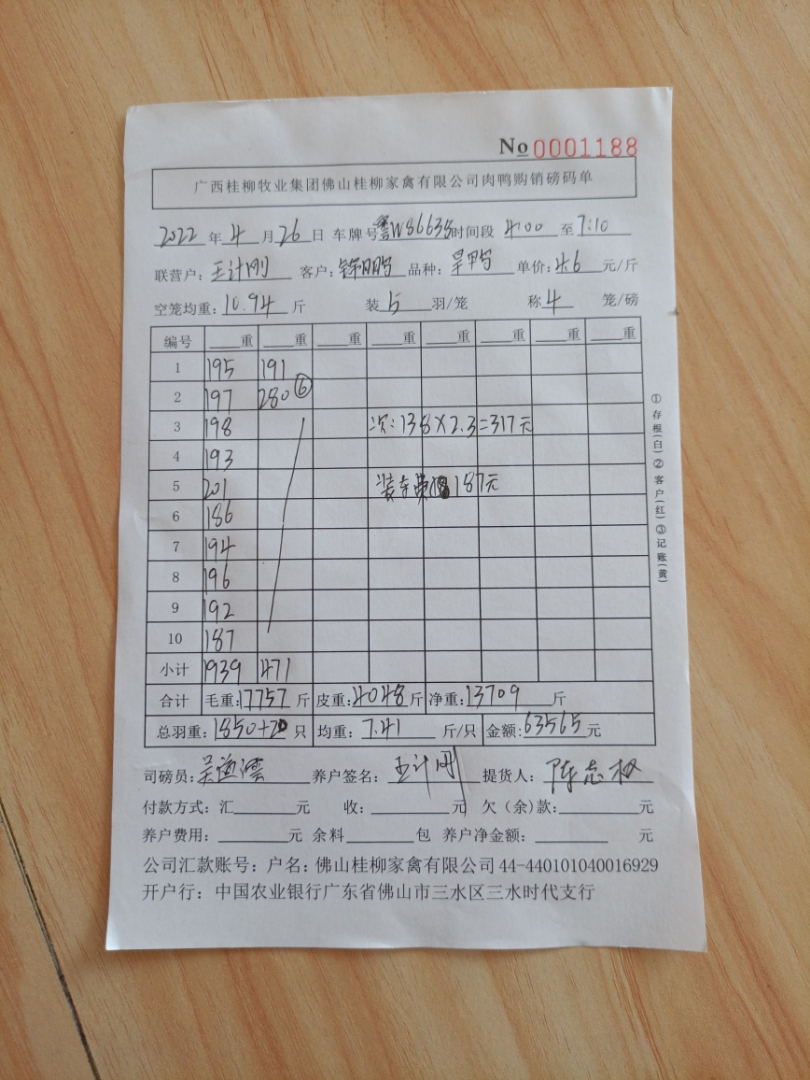 No 0001188
广西桂柳牧业集团佛山桂柳家禽有限公司肉鸭购销磅码单
2022年4月26日 车牌号 W8663 时间段 4:00 至 7:10
联营户:王计刚 客户: 品种: 单价:4.6 元/斤
空笼均重:10.94斤 装5羽/笼 称4笼/磅
编号 重 重 重 重 重 重 重 重
1 195 191
2 197 280 ⑥
3 198 次:138×2.3=317元
4 193
5 201 装车 187元
6 186
7 194
8 196
9 192
10 187
小计 1939 471
合计 毛重:17757斤 皮重:4048斤 净重:13709斤
总羽重:1850+20只 均重:7.41 斤/只 金额:63565元
司磅员: 养户签名:王计刚 提货人:陈志权
付款方式:汇 元 收: 元 欠(余)款: 元
养户费用: 元 余料 包 养户净金额: 元
公司汇款账号:户名:佛山桂柳家禽有限公司 44-440101040016929
开户行:中国农业银行广东省佛山市三水区三水时代支行
①存根(白)②客户(红)③记账(黄)